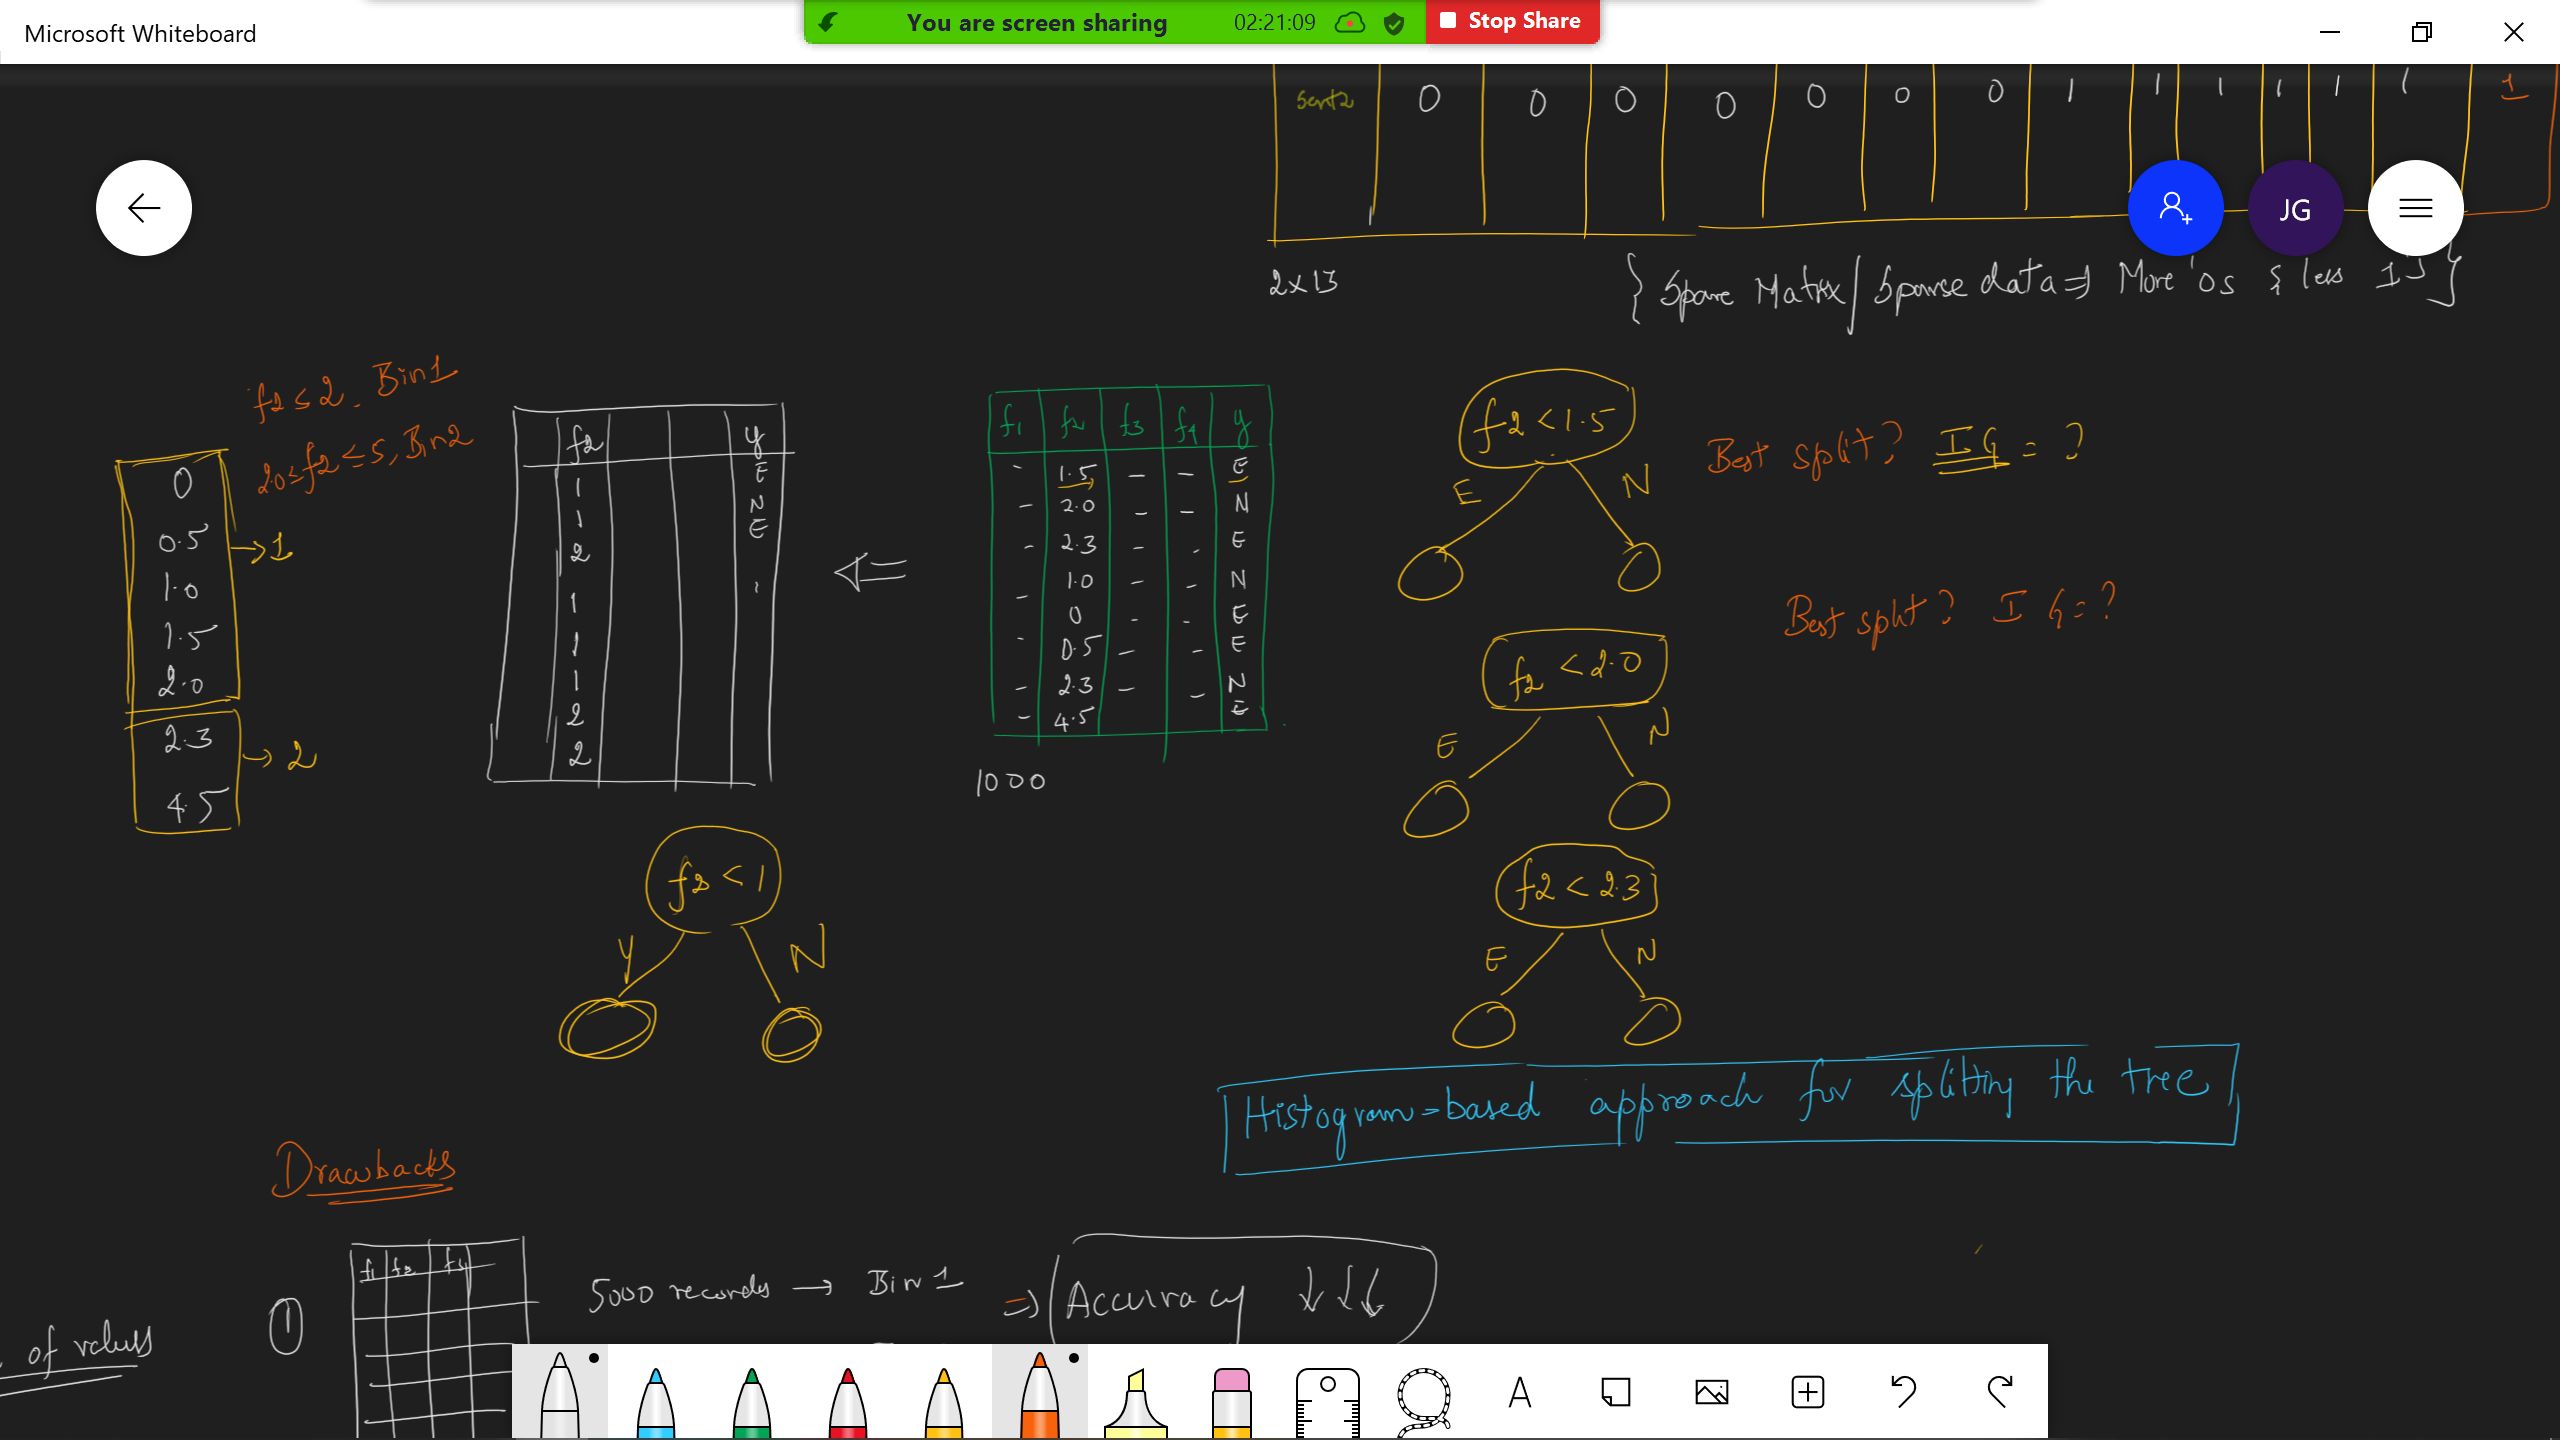 Microsoft Whiteboard
You are screen sharing 02:21:09 Stop Share
Sent2 0 0 0 0 0 0 0 1 1 1 1 1 1 1
JG
2x13
{ Spare Matrix / Sparse data => More 0s & less 1s }
f2 ≤ 2. Bin1
2.0 ≤ f2 ≤ 5, Bin2
0
0.5
1.0
1.5
2.0
→ 1
2.3
4.5
→ 2
f2 y
1 E
1 N
2 E
1
1
1
2
2
<=
f1 f2 f3 f4 y
- 1.5 - - E
- 2.0 - - N
- 2.3 - - E
- 1.0 - - N
0 - - E
- 0.5 - - E
- 2.3 - - N
- 4.5 E
1000
f2 < 1.5
E N
Best split? IG = ?
f2 < 2.0
E N
Best split? IG = ?
f2 < 2.3
E N
f2 < 1
Y N
Histogram-based approach for splitting the tree
Drawbacks
of values
① f1 f2
5000 records → Bin 1 => Accuracy ↓↓↓
A